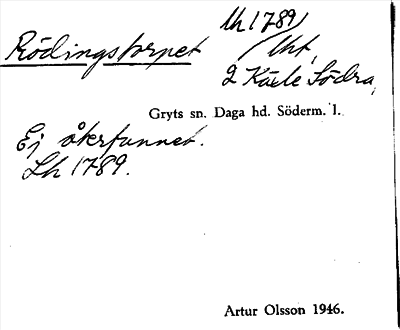 Rödingstorpet
Lh 1789
Uht,
2 Käxle Södra,
Gryts sn. Daga hd. Söderm. l.
Ej återfunnet.
Lh 1789.
Artur Olsson 1946.